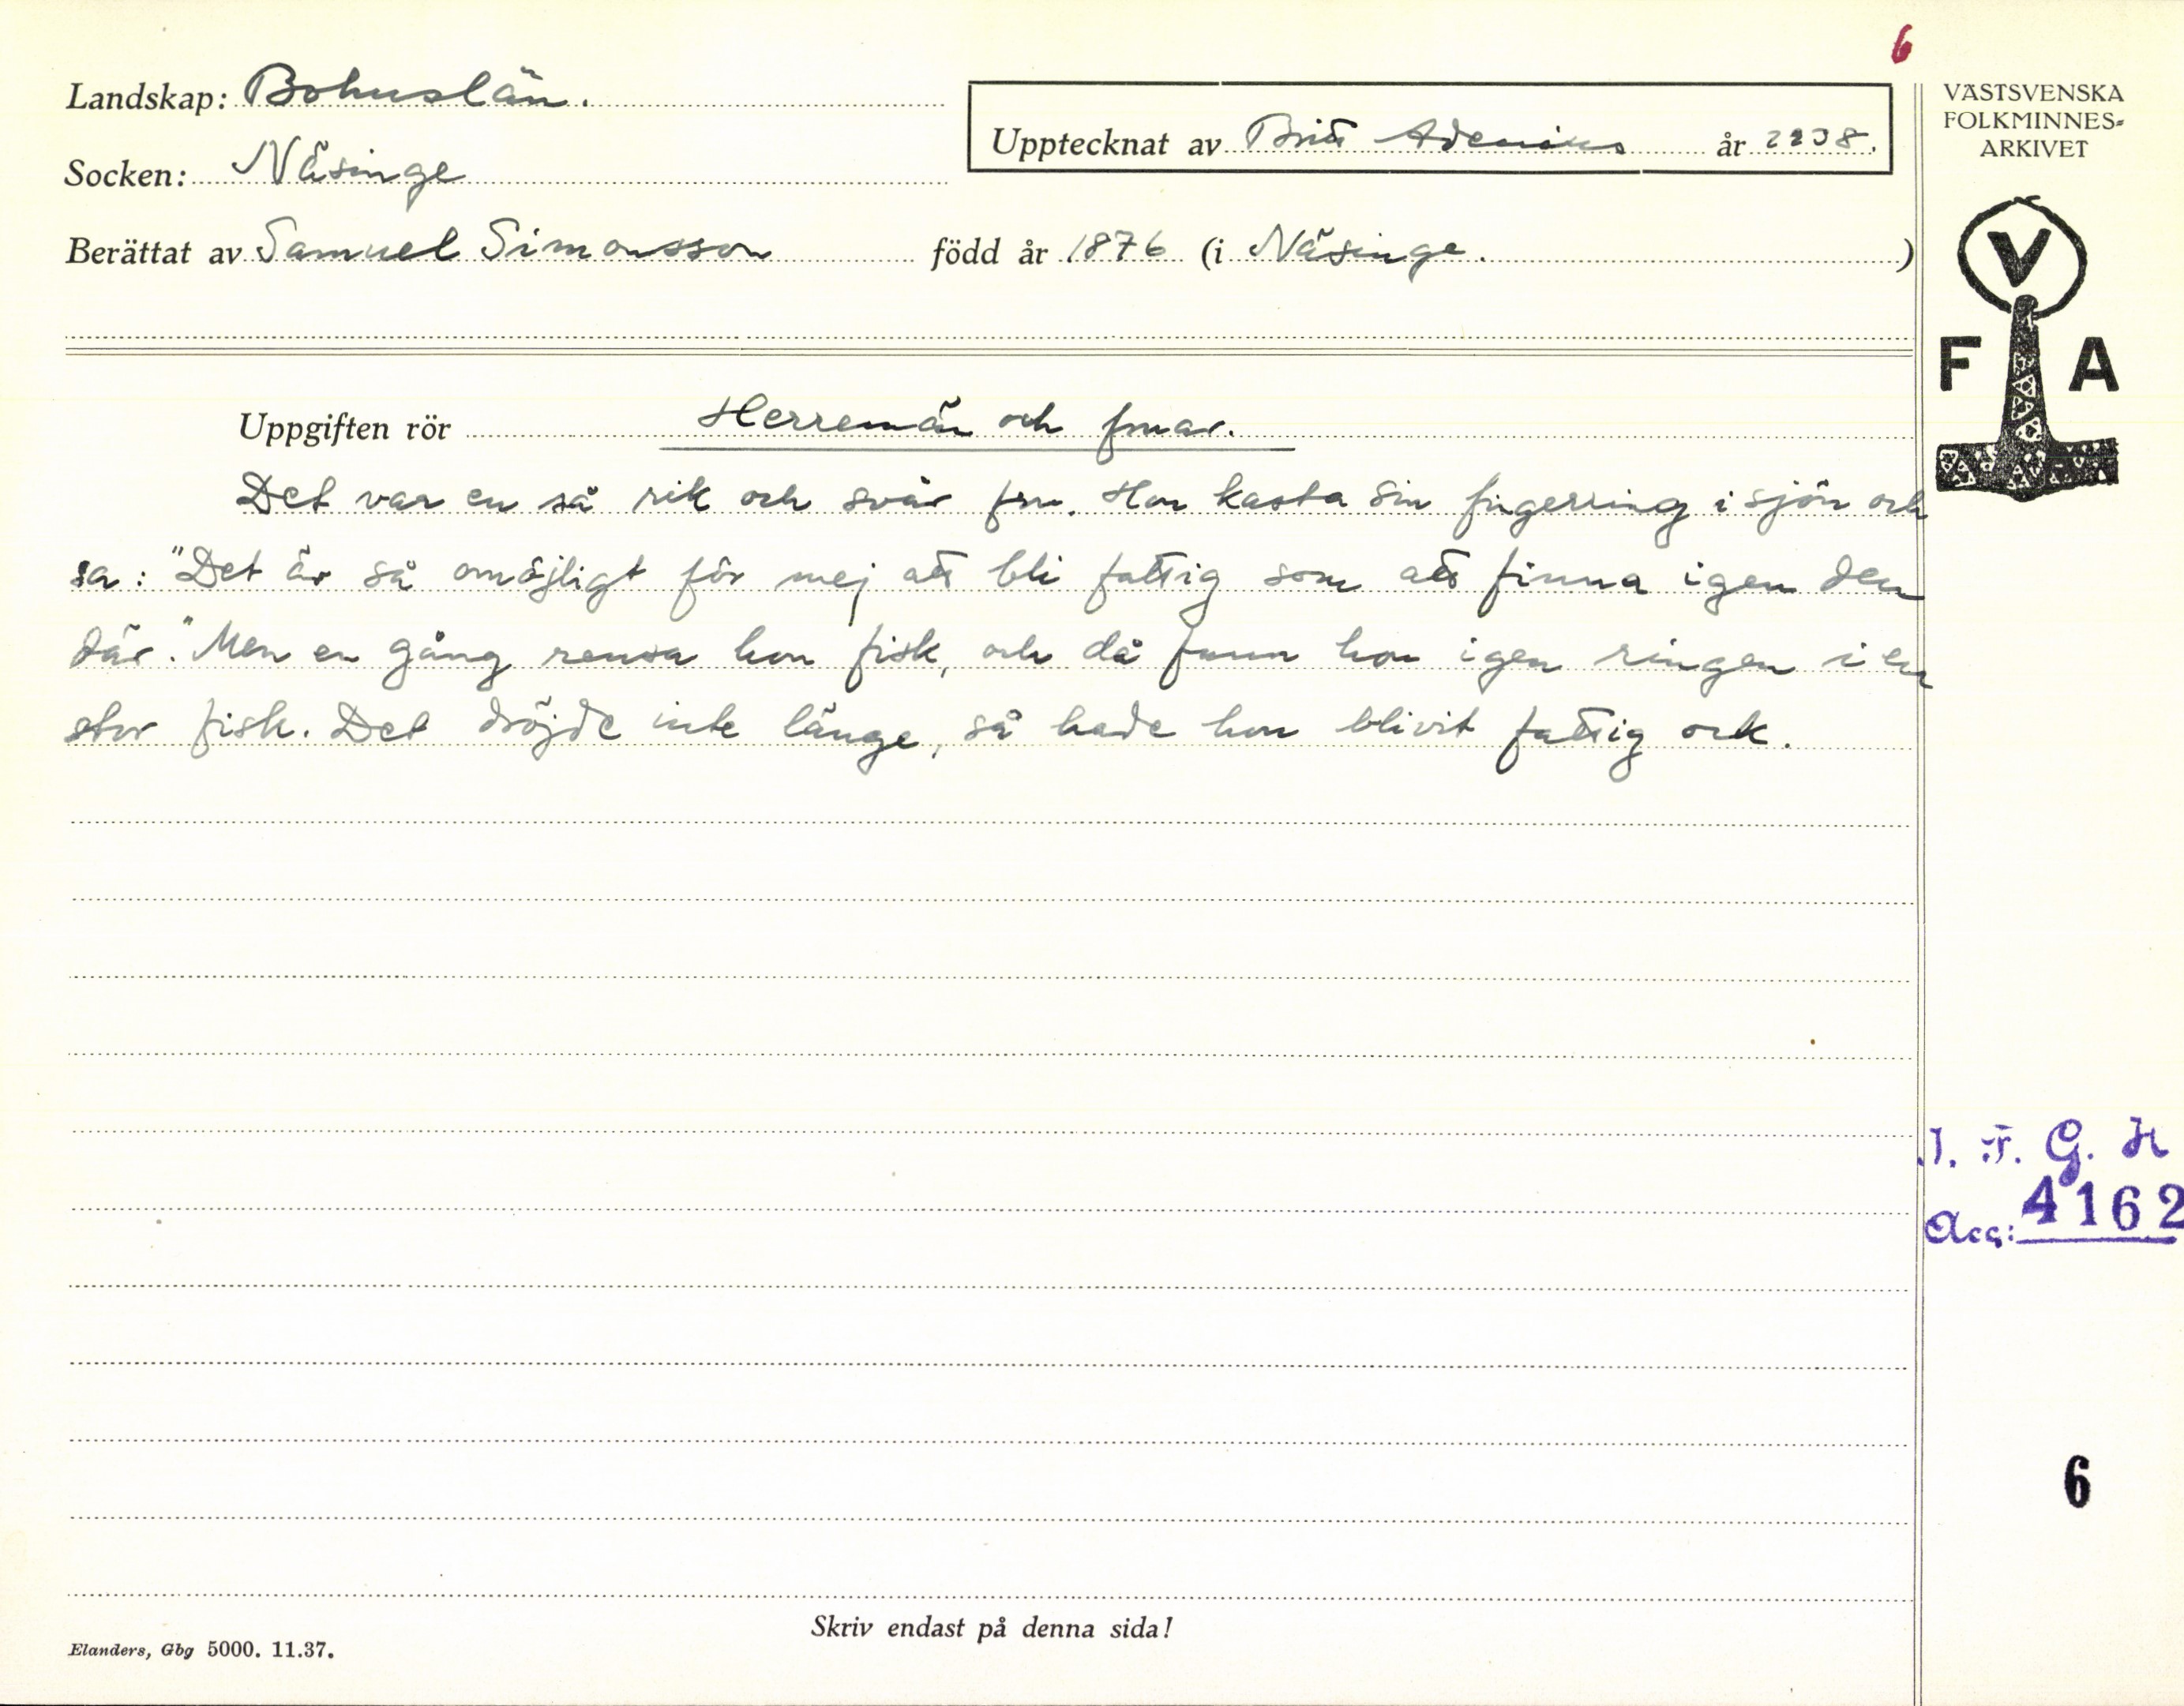 6
Landskap: Bohuslän.
Upptecknat av Britt Adenius år 1938.
VÄSTSVENSKA
FOLKMINNES-
ARKIVET
Socken: Näsinge
Berättat av Samuel Simonsson född år 1876 (i Näsinge.)
V
F A
Uppgiften rör Herremän och fruar.
Det var en så rik och svår fru. Hon kasta sin fingerring i sjön och
sa: "Det är så omöjligt för mej att bli fattig som att finna igen den
där." Men en gång rensa hon fisk, och då fann hon igen ringen i en
stor fisk. Det dröjde inte länge, så hade hon blivit fattig ock.
I. F. G. H
Acc: 4162
6
Skriv endast på denna sida!
Elanders, Gbg 5000. 11.37.